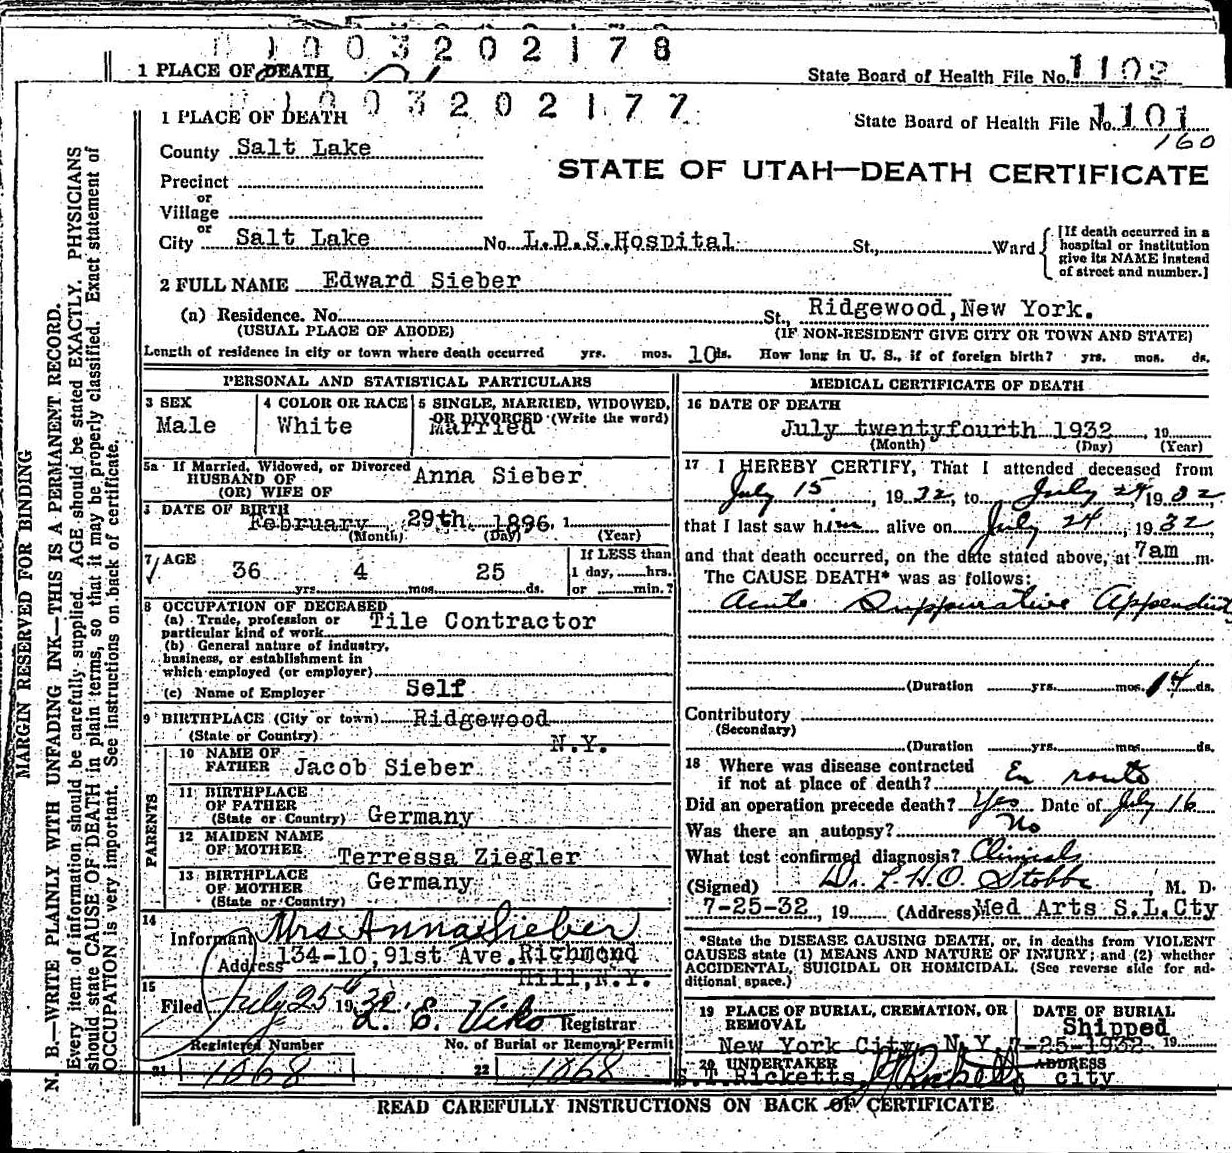 0 1 0 0 3 2 0 2 1 7 8
1 PLACE OF DEATH
State Board of Health File No. 1102
0 1 0 0 3 2 0 2 1 7 7
1 PLACE OF DEATH
State Board of Health File No. 1101
160
County Salt Lake
STATE OF UTAH—DEATH CERTIFICATE
Precinct
or
Village
or
City Salt Lake No. L.D.S.Hospital St., Ward
[If death occurred in a hospital or institution give its NAME instead of street and number.]
2 FULL NAME Edward Sieber
(a) Residence. No. St., Ridgewood,New York.
(USUAL PLACE OF ABODE) (IF NON-RESIDENT GIVE CITY OR TOWN AND STATE)
Length of residence in city or town where death occurred yrs. mos. 10 ds. How long in U. S., if of foreign birth? yrs. mos. ds.
PERSONAL AND STATISTICAL PARTICULARS
3 SEX
Male
4 COLOR OR RACE
White
5 SINGLE, MARRIED, WIDOWED,
OR DIVORCED (Write the word)
Married
5a If Married, Widowed, or Divorced
HUSBAND OF
(OR) WIFE OF
Anna Sieber
DATE OF BIRTH
February 29th 1896, 1
(Month) (Day) (Year)
7 AGE
36 yrs. 4 mos. 25 ds.
If LESS than
1 day, hrs.
or min.?
8 OCCUPATION OF DECEASED
(a) Trade, profession or
particular kind of work Tile Contractor
(b) General nature of industry,
business, or establishment in
which employed (or employer)
(c) Name of Employer Self
9 BIRTHPLACE (City or town) Ridgewood
(State or Country) N.Y.
PARENTS
10 NAME OF
FATHER Jacob Sieber
11 BIRTHPLACE
OF FATHER
(State or Country) Germany
12 MAIDEN NAME
OF MOTHER Terressa Ziegler
13 BIRTHPLACE
OF MOTHER
(State or Country) Germany
14
Informant Mrs Anna Sieber
Address 134-10,91st Ave.Richmond
Hill,N.Y.
15
Filed July 25 1932. L. E. Viko Registrar
Registered Number No. of Burial or Removal Permit
21 1068 22 1068
MEDICAL CERTIFICATE OF DEATH
16 DATE OF DEATH
July twentyfourth 1932, 19
(Month) (Day) (Year)
17 I HEREBY CERTIFY, That I attended deceased from
July 15, 1932, to July 24 1932
that I last saw him alive on July 24, 1932
and that death occurred, on the date stated above, at 7am m.
The CAUSE DEATH* was as follows:
Acute Suppurative Appendicit
(Duration yrs. mos. 14 ds.
Contributory
(Secondary)
(Duration yrs. mos. ds.
18 Where was disease contracted
if not at place of death? En route
Did an operation precede death? Yes Date of July 16
Was there an autopsy? No
What test confirmed diagnosis? Clinical
(Signed) Dr. L. H. O. Stobbe, M. D.
7-25-32, 19 (Address) Med Arts S.L.Cty
*State the DISEASE CAUSING DEATH, or, in deaths from VIOLENT
CAUSES state (1) MEANS AND NATURE OF INJURY; and (2) whether
ACCIDENTAL, SUICIDAL OR HOMICIDAL. (See reverse side for ad-
ditional space.)
19 PLACE OF BURIAL, CREMATION, OR
REMOVAL
New York City, N.Y.
DATE OF BURIAL
Shipped
7-25-1932 19
20 UNDERTAKER ADDRESS
S.T.Ricketts, city
READ CAREFULLY INSTRUCTIONS ON BACK OF CERTIFICATE
MARGIN RESERVED FOR BINDING
N. B.—WRITE PLAINLY WITH UNFADING INK—THIS IS A PERMANENT RECORD.
Every item of information should be carefully supplied. AGE should be stated EXACTLY. PHYSICIANS
should state CAUSE OF DEATH in plain terms, so that it may be properly classified. Exact statement of
OCCUPATION is very important. See instructions on back of certificate.